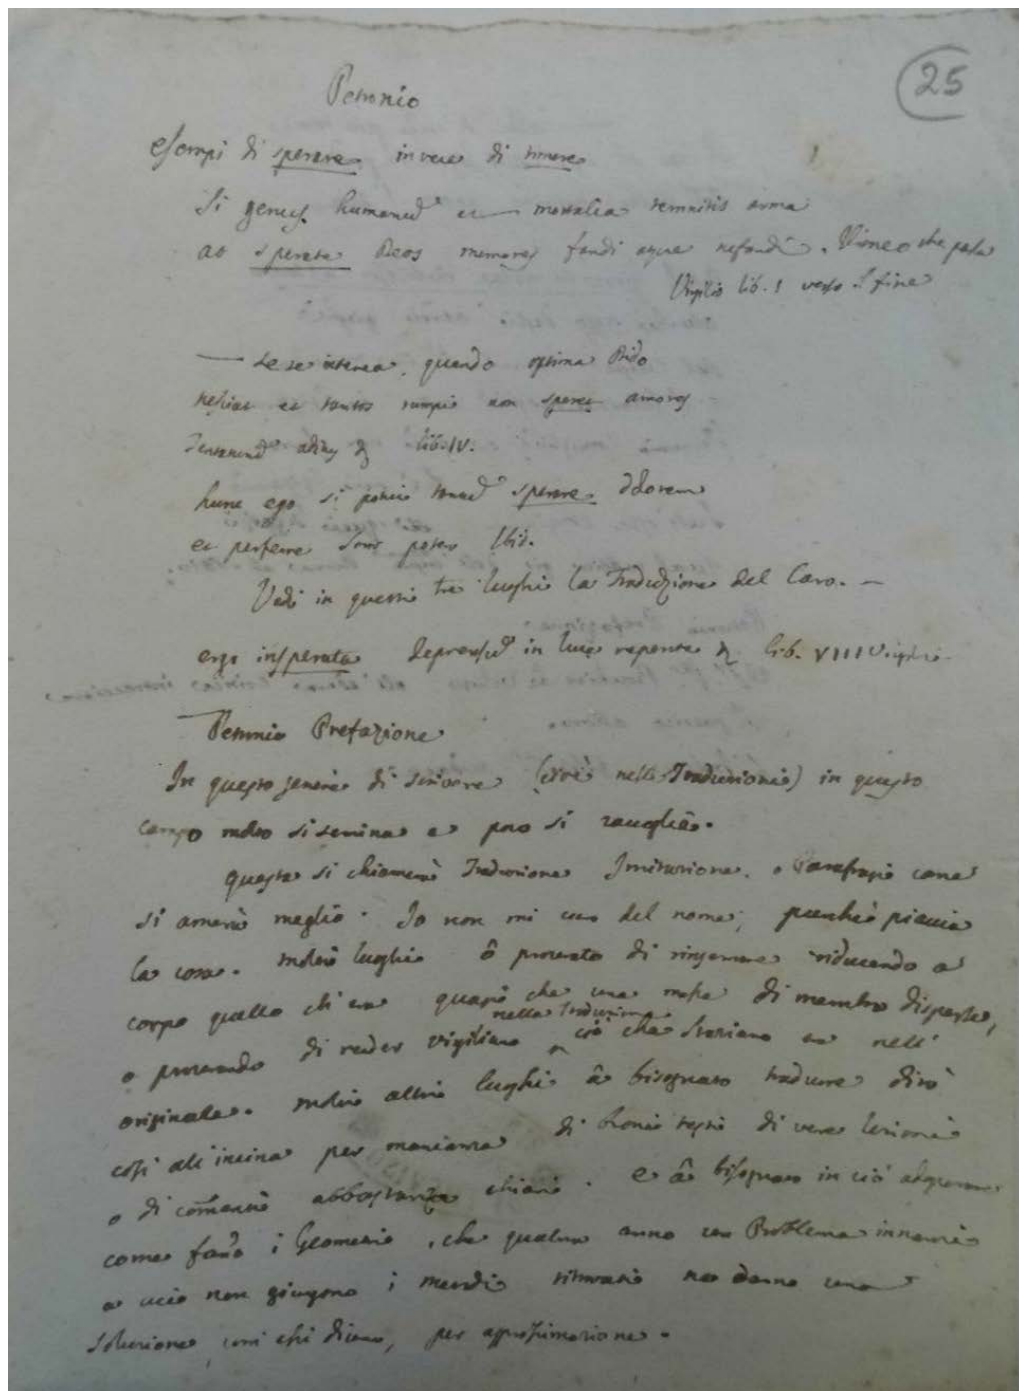 25
Petronio
Esempi di sperare invece di temere
Si genus humanum et mortalia temnitis arma
at sperate Deos memores fandi atque nefandi. che parla
Virgilio lib. I verso il fine
— se se interea, quando optima Dido
nesciat et tantos rumpi non speret amores
Tentaturum aditus lib. IV.
hunc ego si potui tantum sperare dolorem
et perferre soror potero Ibid.
Vedi in questi tre luoghi la Traduzione del Caro. —
ergo insperata deprensum in luce repente lib. VIII Virgilio
Petronio Prefazione
In questo genere di scrivere (cioè nelle Traduzioni) in questo
campo molto si semina e poco si raccoglie.
Questa si chiamerà Traduzione Imitazione, o Parafrasi come
si amerà meglio. Io non mi curo del nome, purchè piaccia
la cosa. Molti luoghi ò procurato di riducendo a
corpo quello ch'era quasi che una massa di membra disperse,
e procurando di render Virgiliano nella Traduzione ciò che Staziano era nell'
originale. Molti altri luoghi â bisognato tradurre dirò
così all'incirca per mancanza di buoni testi di vere lezioni
o di comenti abbastanza chiari. e â bisognato in ciò adoperare
come fanno i Geometri, che qualora anno un Problema innanzi
a cui non giungono i metodi ritrovati ne danno una
soluzione, com'essi dicono, per approssimazione.